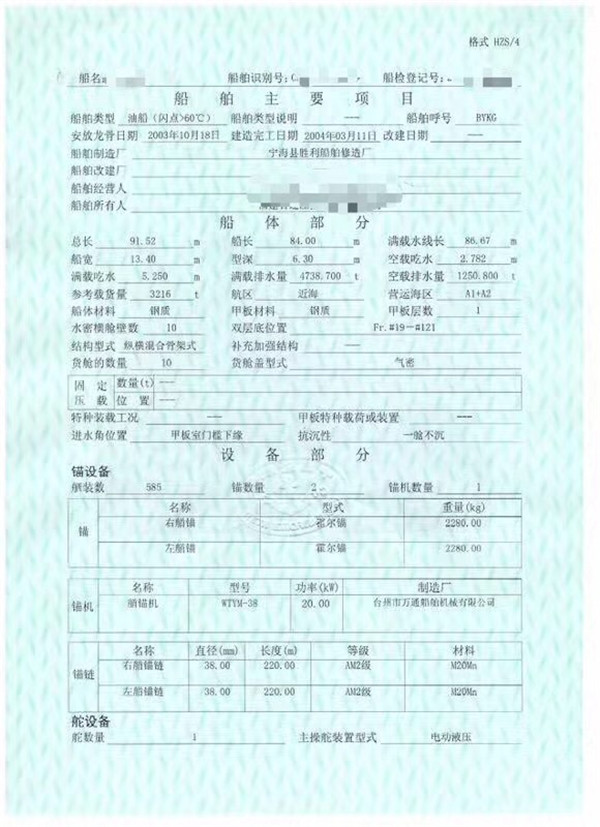 格式 HZS/4
船名 船舶识别号: 船检登记号:
船舶主要项目
船舶类型 油船（闪点>60℃） 船舶类型说明 --- 船舶呼号 BYKG
安放龙骨日期 2003年10月18日 建造完工日期 2004年03月11日 改建日期 ---
船舶制造厂 宁海县胜利船舶修造厂
船舶改建厂
船舶经营人
船舶所有人
船体部分
总长 91.52 m 船长 84.00 m 满载水线长 86.67 m
船宽 13.40 m 型深 6.30 m 空载吃水 2.782 m
满载吃水 5.250 m 满载排水量 4738.700 t 空载排水量 1250.800 t
参考载货量 3216 t 航区 近海 营运海区 A1+A2
船体材料 钢质 甲板材料 钢质 甲板层数 1
水密横舱壁数 10 双层底位置 Fr.#19~#121
结构型式 纵横混合骨架式 补充加强结构 ---
货舱的数量 10 货舱盖型式 气密
固定 数量(t) ---
压载 位置 ---
特种装载工况 --- 甲板特种载荷或装置 ---
进水角位置 甲板室门槛下缘 抗沉性 一舱不沉
设备部分
锚设备
舾装数 585 锚数量 2 锚机数量 1
名称 型式 重量(kg)
锚
右艏锚 霍尔锚 2280.00
左艏锚 霍尔锚 2280.00
名称 型号 功率(kW) 制造厂
锚机 艏锚机 WTYM-38 20.00 台州市万通船舶机械有限公司
名称 直径(mm) 长度(m) 等级 材料
锚链
右艏锚链 38.00 220.00 AM2级 M20Mn
左艏锚链 38.00 220.00 AM2级 M20Mn
舵设备
舵数量 1 主操舵装置型式 电动液压